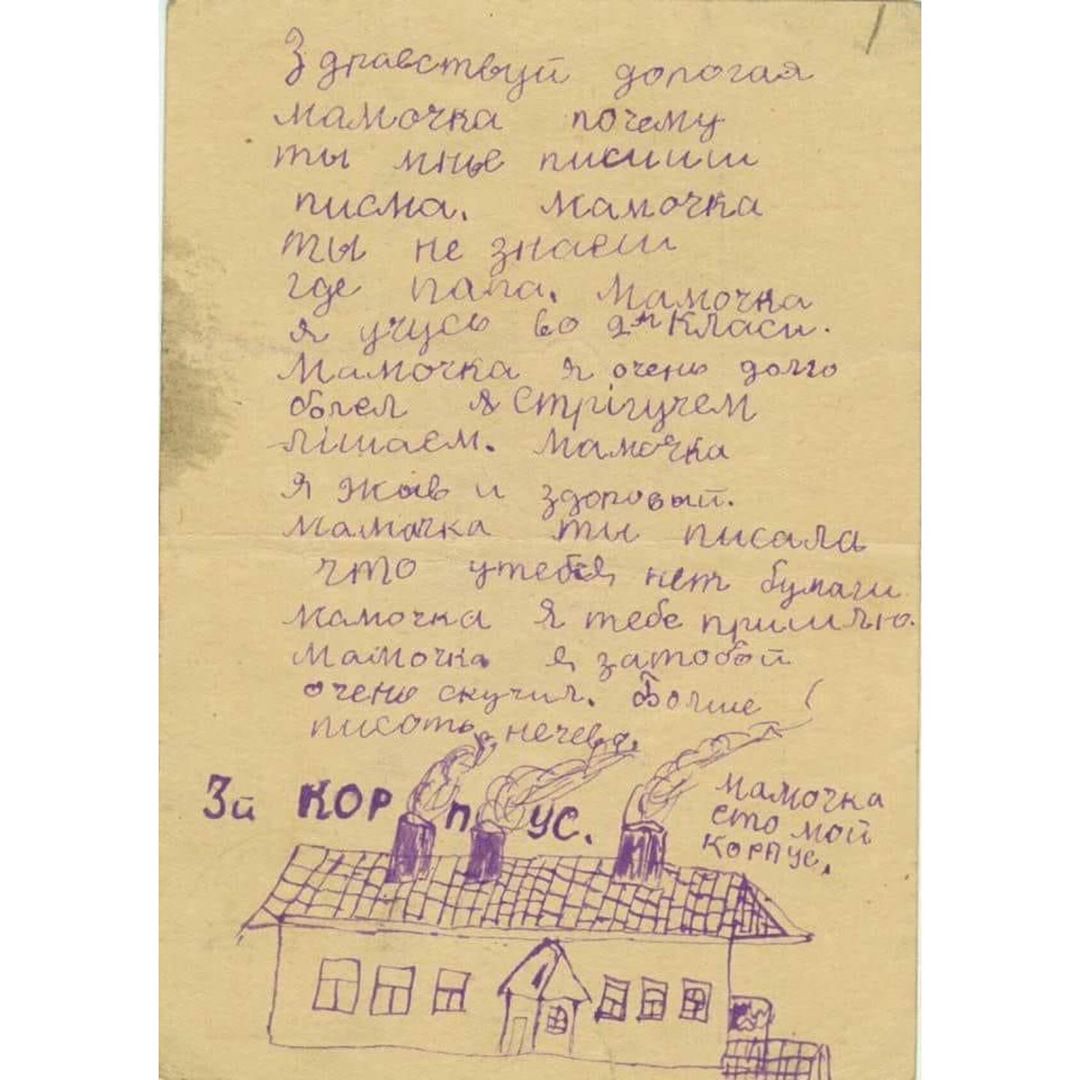 Здравствуй дорогая
мамочка почему
ты мнье писиш
писма. Мамочка
ты не знаеш
где папа. Мамочка
я учусь во 2м Класи.
Мамочка я очень долго
болел я Стрігучем
лішаєм. Мамочка
я жыв и здоровый.
мамочка ты писала
что утебя нет бумаги
мамочка я тебе пришлю.
мамочка я затобой
очень скучил. Болше
писать нечево.
3й КОРПУС.
мамочка
ето мой
корпус.